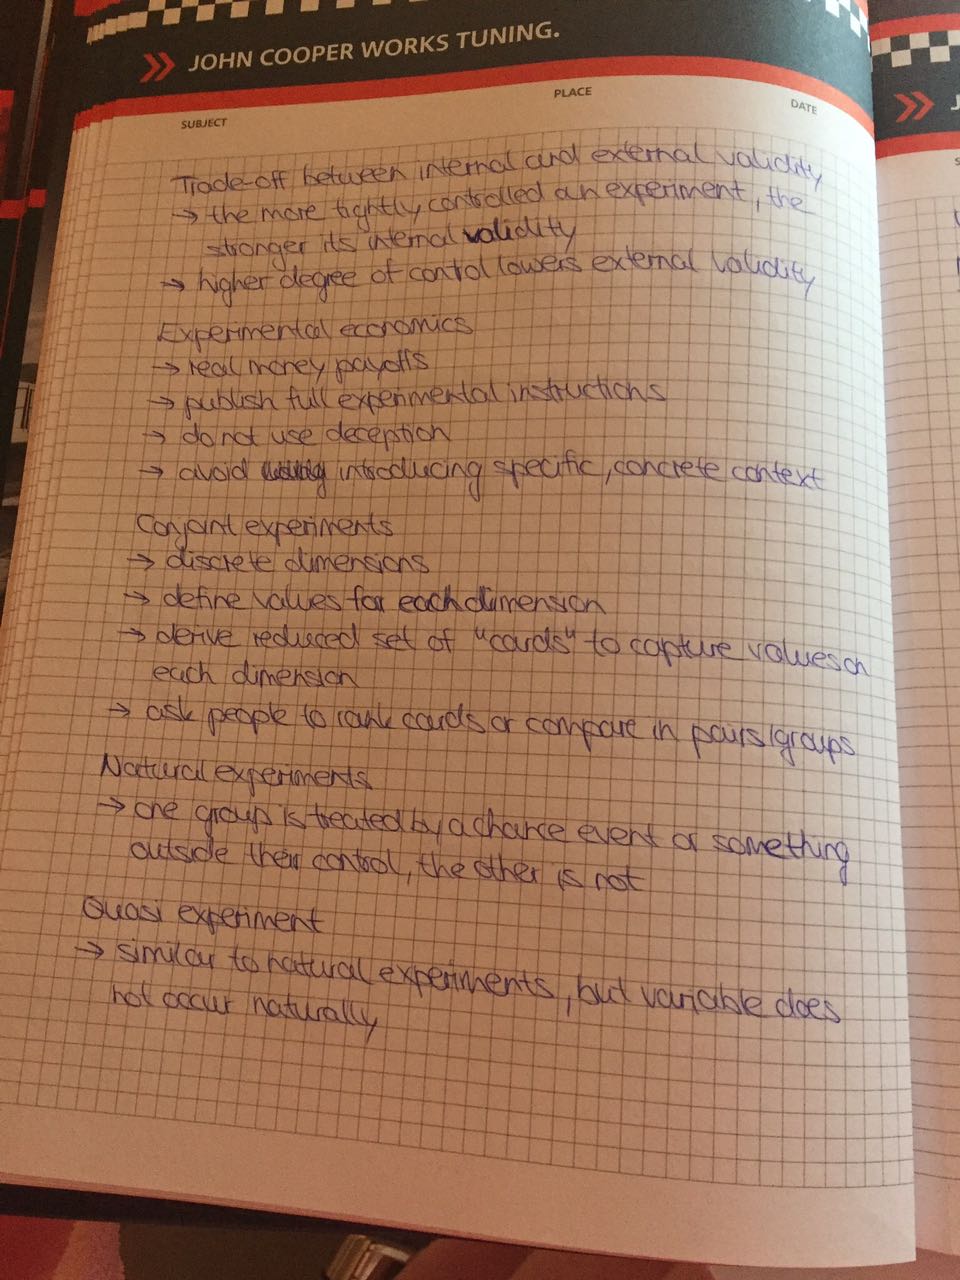 JOHN COOPER WORKS TUNING.
SUBJECT
PLACE
DATE
Trade-off between internal and external validity
→ the more tightly controlled an experiment, the
stronger its internal validity
→ higher degree of control lowers external validity
Experimental economics
→ real money payoffs
→ publish full experimental instructions
→ do not use deception
→ avoid introducing specific, concrete context
Conjoint experiments
→ discrete dimensions
→ define values for each dimension
→ derive reduced set of "cards" to capture values on
each dimension
→ ask people to rank cards or compare in pairs/groups
Natural experiments
→ one group is treated by a chance event or something
outside their control, the other is not
Quasi experiment
→ similar to natural experiments, but variable does
not occur naturally